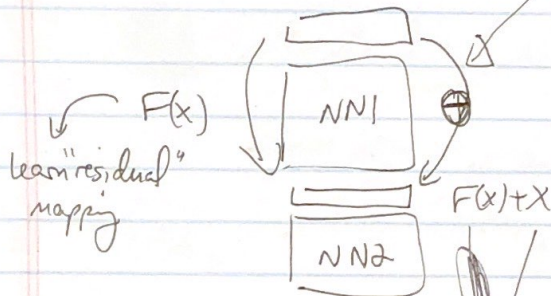 NN1
F(x)
learn "residual"
mapping
F(x)+x
NN2